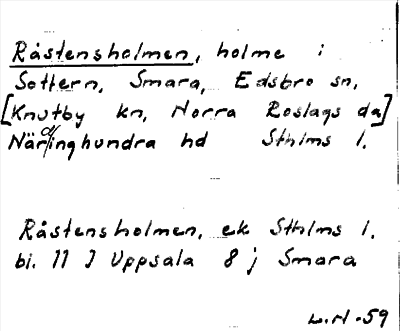 Råstensholmen, holme i
Sottern, Smara, Edsbro sn,
[Knutby kn, Norra Roslags da]
Närdinghundra hd Sthlms l.
Råstensholmen, ek Sthlms l.
bl. 11 I Uppsala 8 j Smara
L.H-59